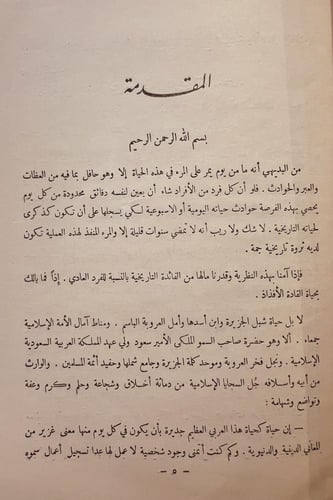 المقدمة
بسم الله الرحمن الرحيم
من البديهي أنه ما من يوم يمر على المرء في هذه الحياة إلا وهو حافل بما فيه من العظات
والعبر والحوادث . فلو أن كل فرد من الأفراد شاء أن يعين لنفسه دقائق محدودة من كل يوم
يحصي بهذه الفرصة حوادث حياته اليومية أو الاسبوعية لكي يسجلها على أن تكون كذكرى
لحياته التاريخية . لا شك ولا ريب أنه لا تمضي سنوات قليلة إلا والمرء المنفذ لهذه العملية تكون
لديه ثروة تاريخية جمة .
فإذا آمنا بهذه النظرية وقدرنا مالها من الفائدة التاريخية بالنسبة للفرد العادي . إذاً فما بالك
بحياة القادة الأفذاذ .
لا بل حياة شبل الجزيرة وابن أسدها وأمل العروبة الباسم . ومناط آمال الأمة الإسلامية
جمعاء . ألا وهو حضرة صاحب السمو الملكي الأمير سعود ولي عهد المملكة العربية السعودية
الإسلامية . ونجل فخر العروبة وموحد كلمة الجزيرة وجامع شملها وحفيد أئمة المسلمين . والوارث
من أبيه وأسلافه جُل السجايا الإسلامية من دماثة أخلاق وشجاعة وحلم وكرم وعفة
وتواضع وشهامة :
— إن حياة كحياة هذا العربي العظيم جديرة بأن يكون في كل يوم منها معنى غزير من
المعاني الدينية والدنيوية . وكم كنت أتمنى وجود شخصية لا عمل لها عدا تسجيل أعمال سموه
— ٥ —